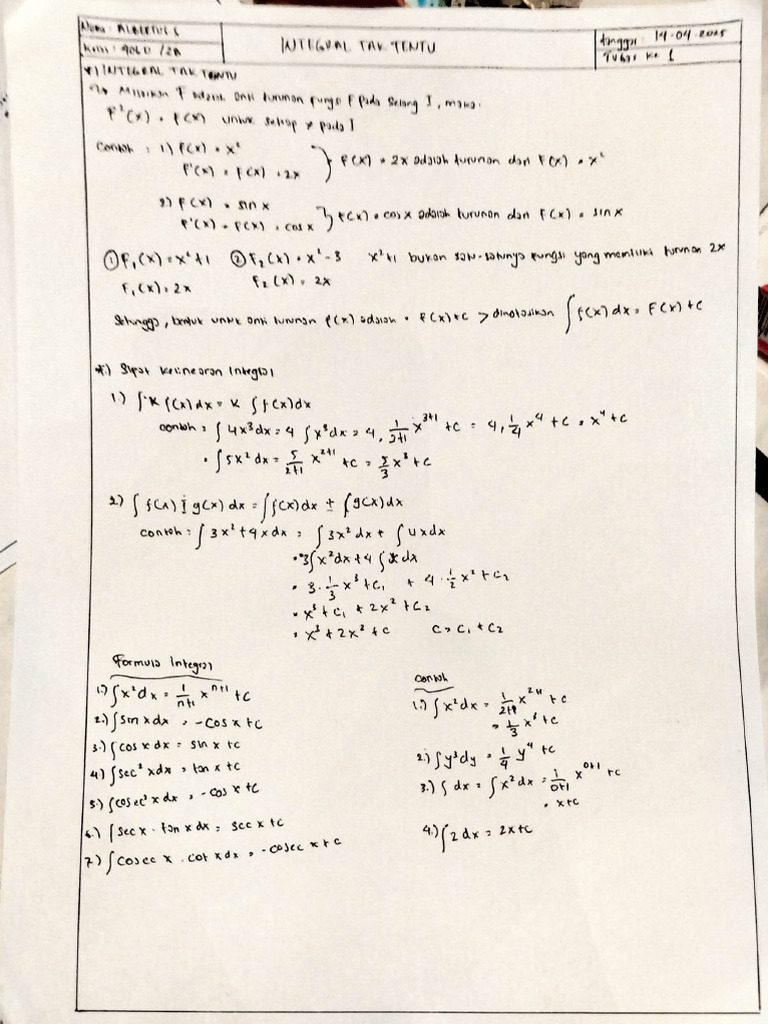 Nama : ALBERTUS S
Kelas : GOLD / 2A
INTEGRAL TAK TENTU
Tanggal : 14-04-2025
Tugas ke 1
*) INTEGRAL TAK TENTU
Misalkan F adalah anti turunan fungsi f pada selang I, maka.
F'(x) = f(x) untuk setiap x pada I
Contoh : 1) F(x) = x²
F'(x) = f(x) = 2x } f(x) = 2x adalah turunan dari F(x) = x²
2) F(x) = sin x
F'(x) = f(x) = cos x } f(x) = cos x adalah turunan dari F(x) = sin x
① F₁(x) = x²+1 ② F₂(x) = x²-3 x²+1 bukan satu-satunya fungsi yang memiliki turunan 2x
F₁(x) = 2x F₂(x) = 2x
Sehingga, bentuk untuk anti turunan f(x) adalah = F(x)+c > dinotasikan ∫f(x) dx = F(x)+c
*.) Sifat kelinearan Integral
1.) ∫K f(x) dx = K ∫f(x) dx
contoh : ∫4x³dx = 4 ∫x³dx = 4, 1/3+1 x³⁺¹ + c = 4, 1/4 x⁴ + c = x⁴ + c
• ∫5x² dx = 5/2+1 x²⁺¹ + c = 5/3 x³ + c
2.) ∫f(x) ± g(x) dx = ∫f(x) dx ± ∫g(x) dx
contoh : ∫3x²+4x dx = ∫3x² dx + ∫4x dx
= 3∫x²dx + 4 ∫x dx
= 3 · 1/3 x³ + C₁ + 4 · 1/2 x² + C₂
= x³ + C₁ + 2x² + C₂
= x³ + 2x² + c C = C₁ + C₂
Formula Integral
1.) ∫x²dx = 1/n+1 xⁿ⁺¹ + c
2.) ∫sin x dx = -cos x + c
3.) ∫cos x dx = sin x + c
4.) ∫sec² x dx = tan x + c
5.) ∫cosec² x dx = -cos x + c
6.) ∫sec x · tan x dx = sec x + c
7.) ∫cosec x · cot x dx = -cosec x + c
contoh
1.) ∫x²dx = 1/2+1 x²⁺¹ + c
= 1/3 x³ + c
2.) ∫y³dy = 1/4 y⁴ + c
3.) ∫dx = ∫x²dx = 1/0+1 x⁰⁺¹ + c
= x + c
4.) ∫2 dx = 2x + c